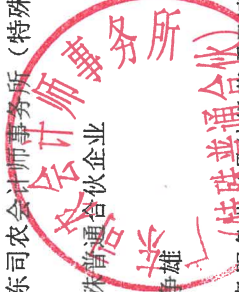 东司农会计师事务所（特殊
殊普通合伙企业
争雄
东司农会计师事务所
（特殊普通合伙）